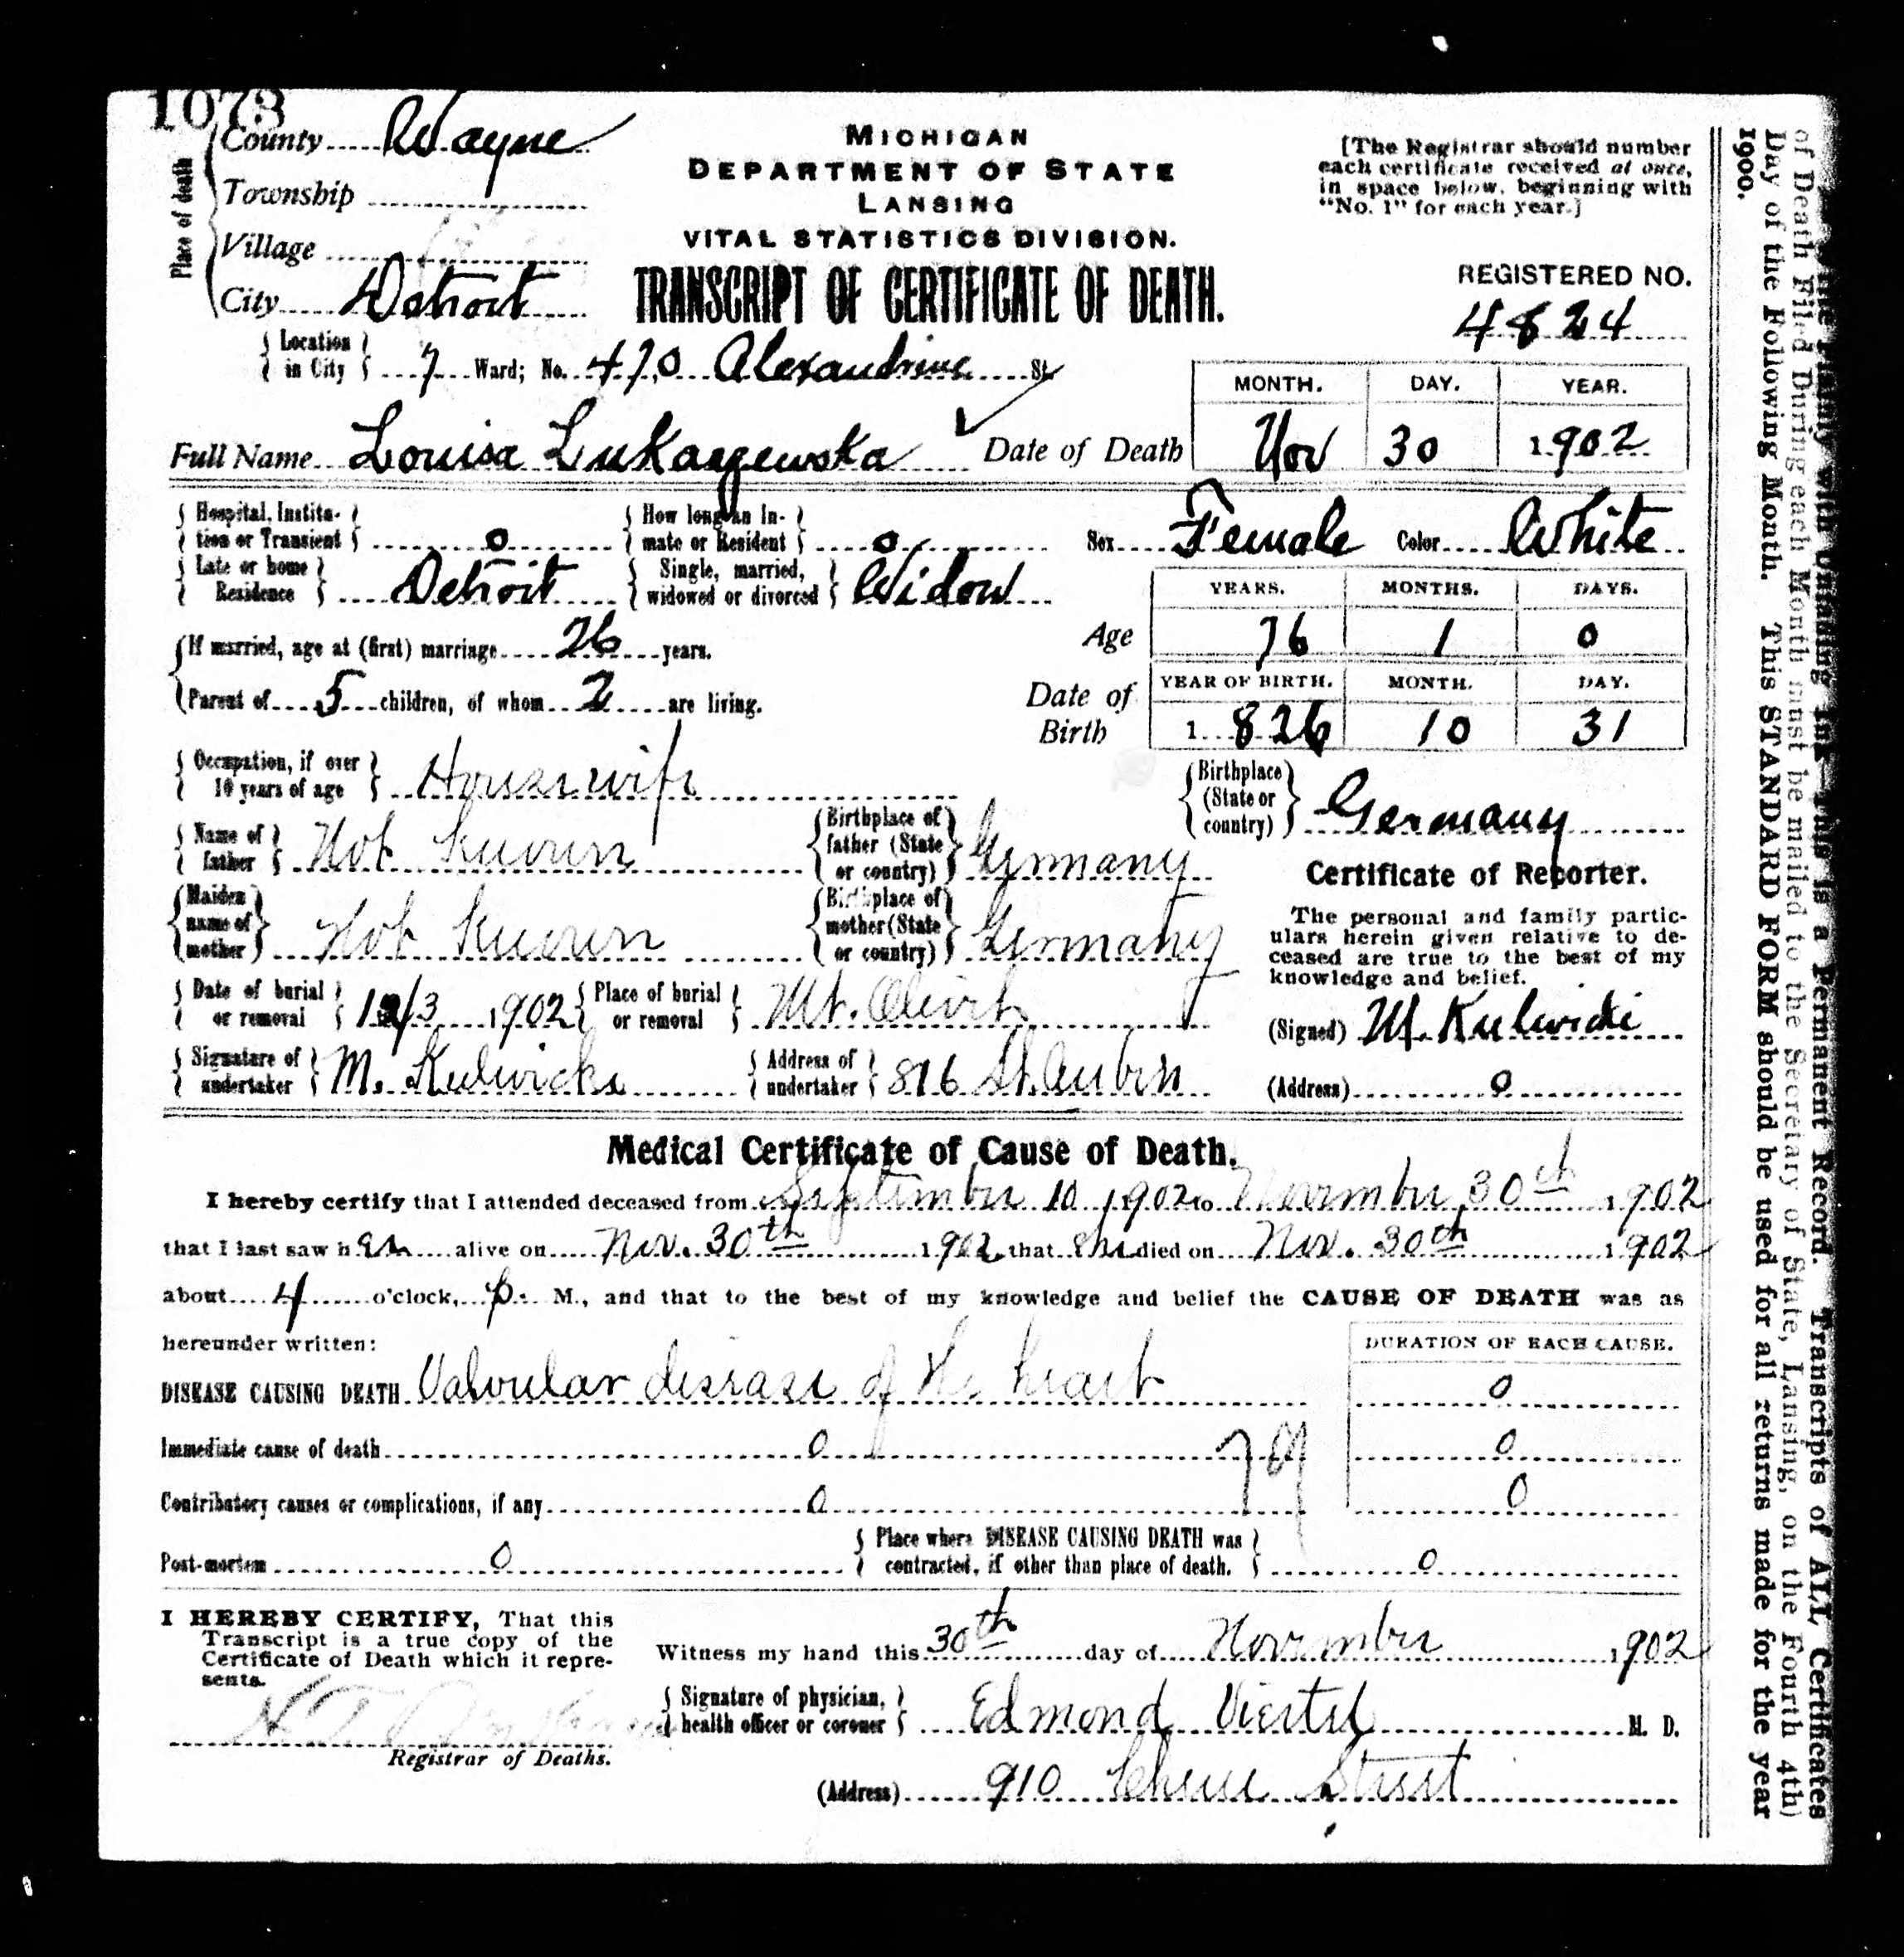 1073
Place of death
County Wayne
Township
Village
City Detroit
MICHIGAN
DEPARTMENT OF STATE
LANSING
VITAL STATISTICS DIVISION.
TRANSCRIPT OF CERTIFICATE OF DEATH.
[The Registrar should number
each certificate received at once,
in space below, beginning with
"No. 1" for each year.]
REGISTERED NO.
4824
Location in City 7 Ward; No. 470 Alexandrine St
Full Name Louisa Lukaszewska Date of Death
MONTH. DAY. YEAR.
Nov 30 1902
Hospital, Institution or Transient 0 How long an Inmate or Resident 0 Sex Female Color White
Late or home Residence Detroit Single, married, widowed or divorced Widow
If married, age at (first) marriage 26 years.
Parent of 5 children, of whom 2 are living.
Age
YEARS. MONTHS. DAYS.
76 1 0
Date of Birth
YEAR OF BIRTH. MONTH. DAY.
1826 10 31
Occupation, if over 10 years of age Housewife
Birthplace (State or country) Germany
Name of father Not Known Birthplace of father (State or country) Germany
Maiden name of mother Not Known Birthplace of mother (State or country) Germany
Date of burial or removal 12/3 1902 Place of burial or removal Mt. Olivet
Signature of undertaker M. Kulwicki Address of undertaker 816 St. Aubin
Certificate of Reporter.
The personal and family partic-
ulars herein given relative to de-
ceased are true to the best of my
knowledge and belief.
(Signed) M. Kulwicki
(Address) 0
Medical Certificate of Cause of Death.
I hereby certify that I attended deceased from September 10 1902 to November 30th 1902
that I last saw her alive on Nov. 30th 1902 that she died on Nov. 30th 1902
about 4 o'clock, p. M., and that to the best of my knowledge and belief the CAUSE OF DEATH was as
hereunder written:
DURATION OF EACH CAUSE.
DISEASE CAUSING DEATH Valvular disease of the heart 0
Immediate cause of death 0 79 0
Contributory causes or complications, if any 0 0
Post-mortem 0 Place where DISEASE CAUSING DEATH was contracted, if other than place of death. 0
I HEREBY CERTIFY, That this
Transcript is a true copy of the
Certificate of Death which it repre-
sents.
Registrar of Deaths.
Witness my hand this 30th day of November 1902
Signature of physician, health officer or coroner Edmond Viertel M. D.
(Address) 910 Chene Street
with Unfading Ink—This is a Permanent Record. Transcripts of ALL Certificates
of Death Filed During each Month must be mailed to the Secretary of State, Lansing, on the Fourth 4th)
Day of the Following Month. This STANDARD FORM should be used for all returns made for the year
1900.